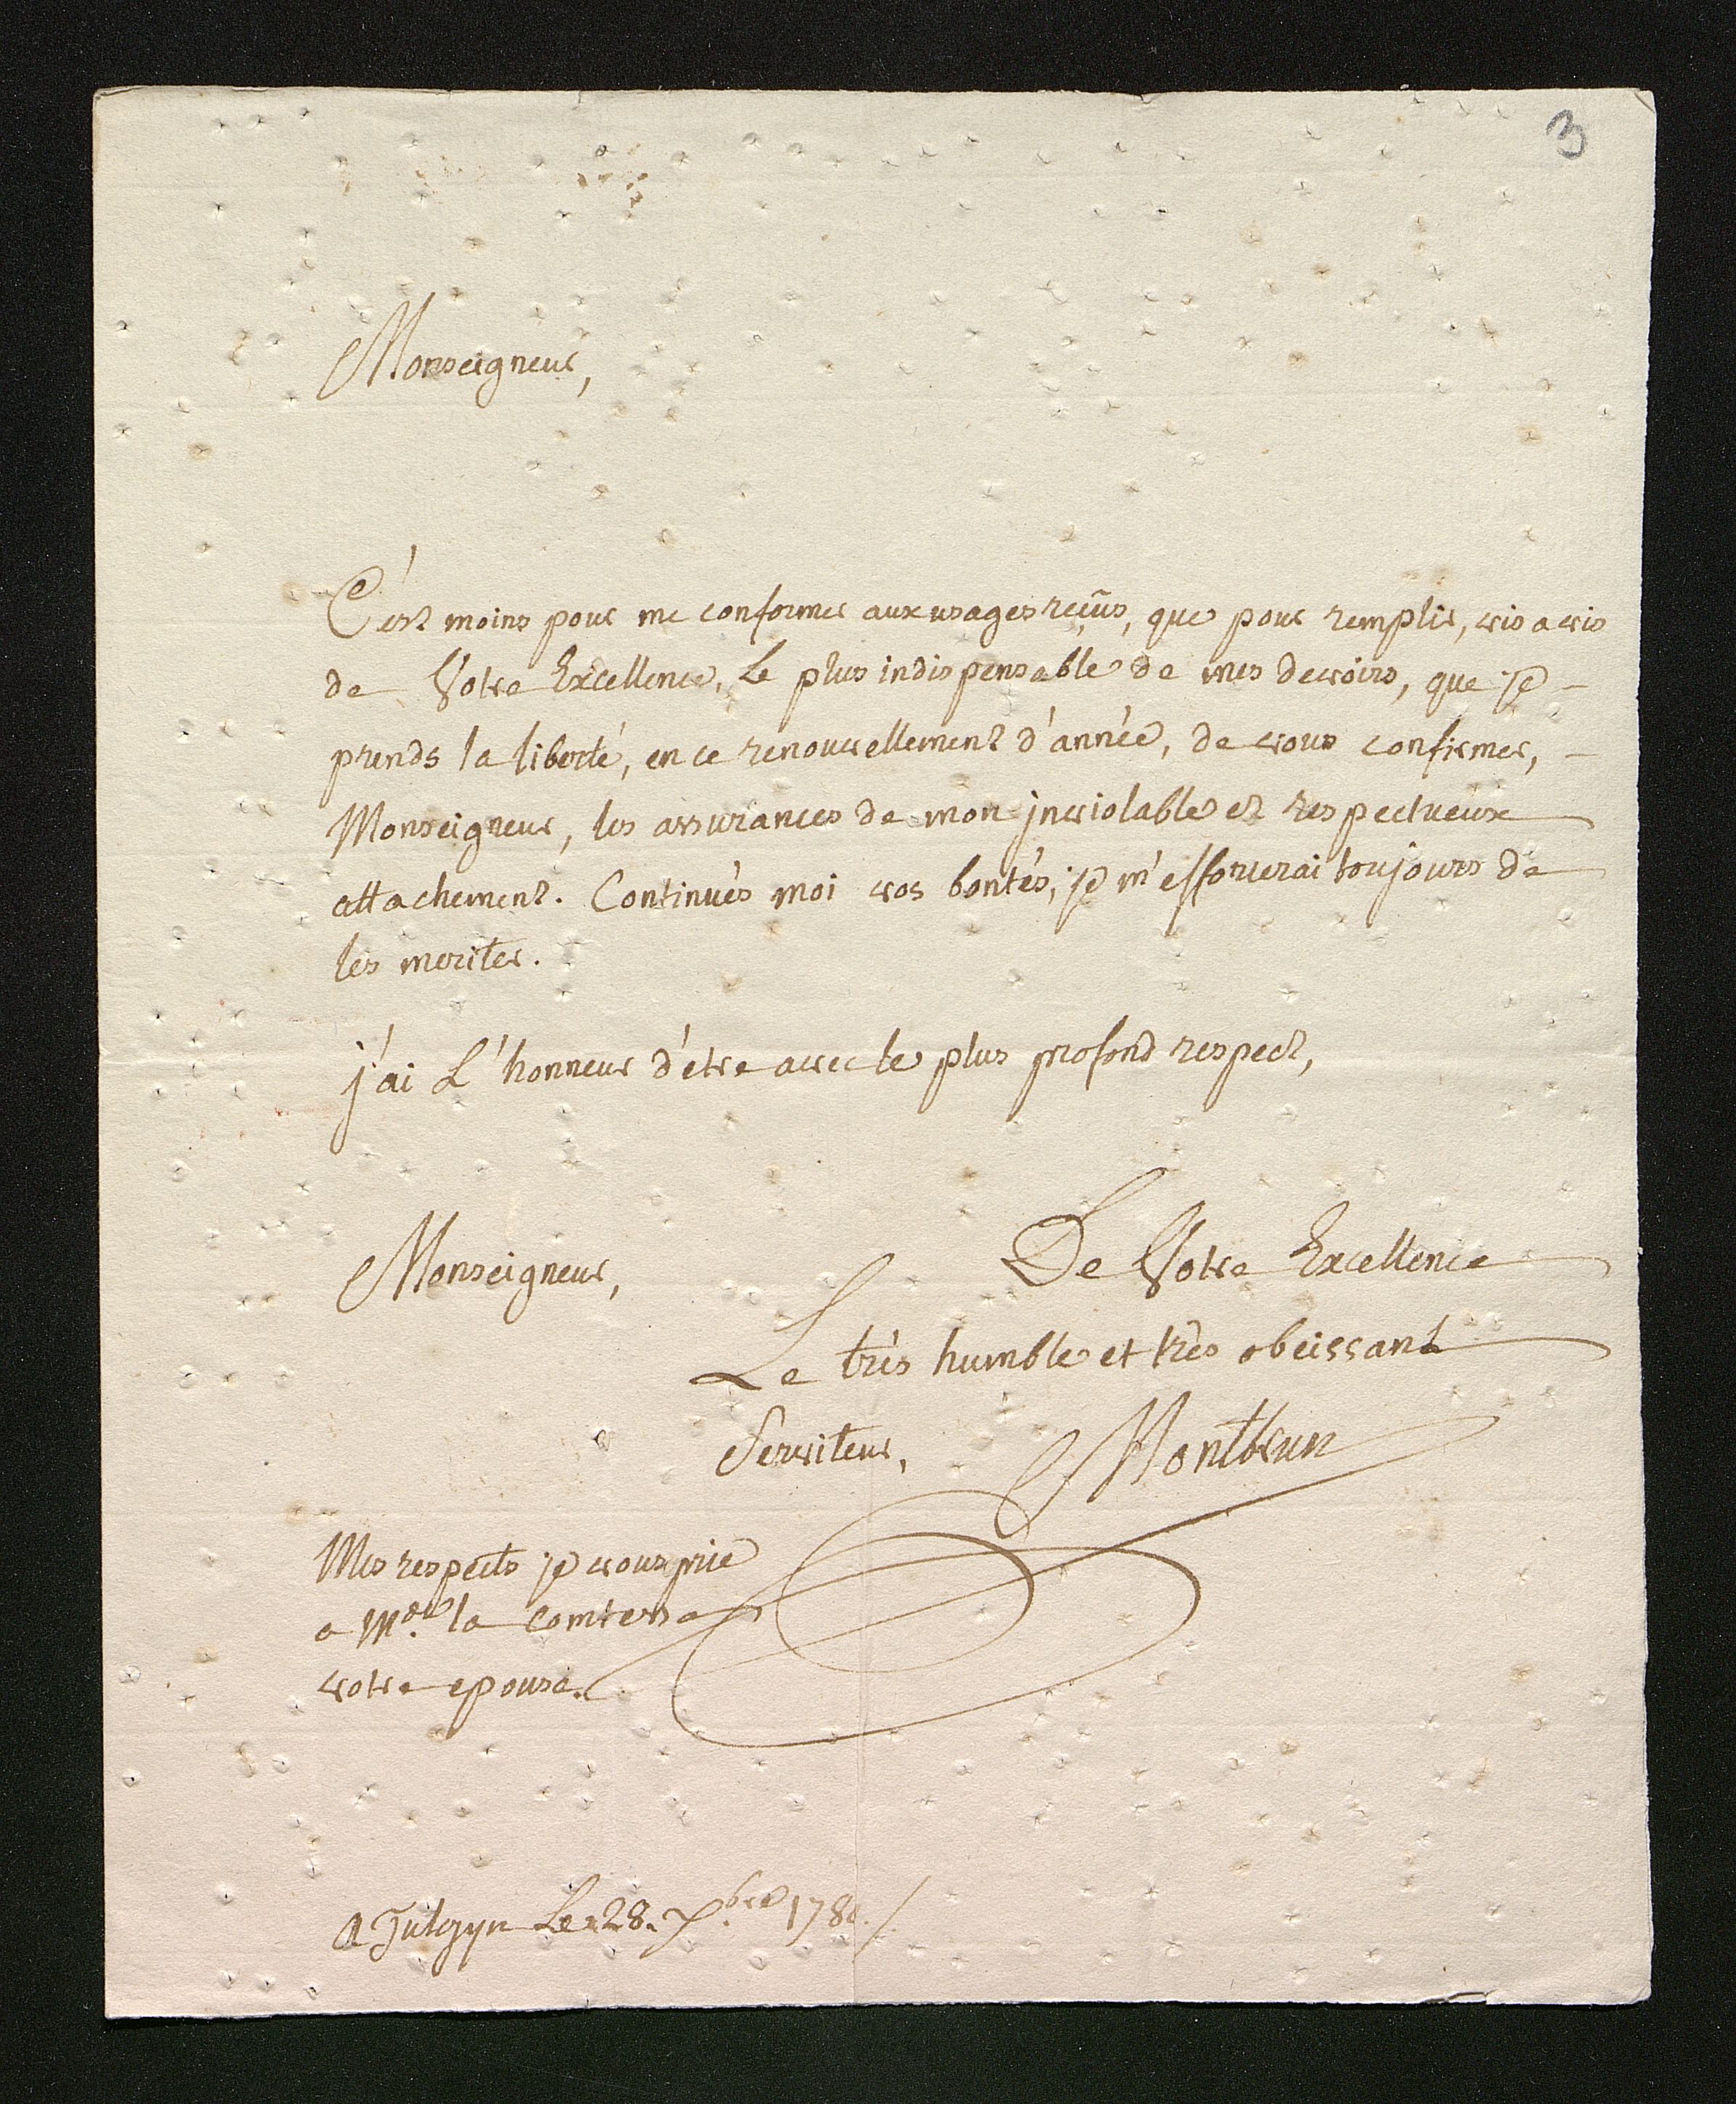 3
Monseigneur,
C'est moins pour me conformer aux usages reçûs, que pour remplir, vis a vis
de Votre Excellence, Le plus indispensable de mes devoirs, que je -
prends la liberté, en ce renouvellement d'année, de vous confirmer, -
Monseigneur, les assurances de mon jnviolable et respectueux
attachement. Continués moi vos bontés, je m'efforcerai toujours de
les meriter.
j'ai L'honneur d'étre avec le plus profond respect,
Monseigneur,
De Votre Excellence
Le trés humble et trés obeissant
Serviteur, Montbrun
Mes respects je vous prie
a Mde. la Comtesse
votre epouse.
A Tulczyn Le 28. Xbre